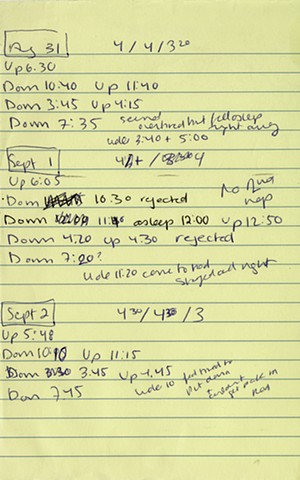 Aug 31 4/4/3 20
Up 6:30
Down 10:40 Up 11:40
Down 3:45 Up 4:15
Down 7:35 seemed
overtired but fell asleep
right away
woke 3:40 + 5:00
Sept 1
Up 6:05
Down 10:30 rejected
No 2nd
nap
Down asleep 12:00 Up 12:50
Down 4:20 up 4:30 rejected
Down 7:20?
woke 11:20 came to bed
stayed all night
Sept 2 4 30/4 30/3
Up 5:48
Down 10:10 Up 11:15
Down 3:45 Up 4:45
Down 7:45
woke 10
put down